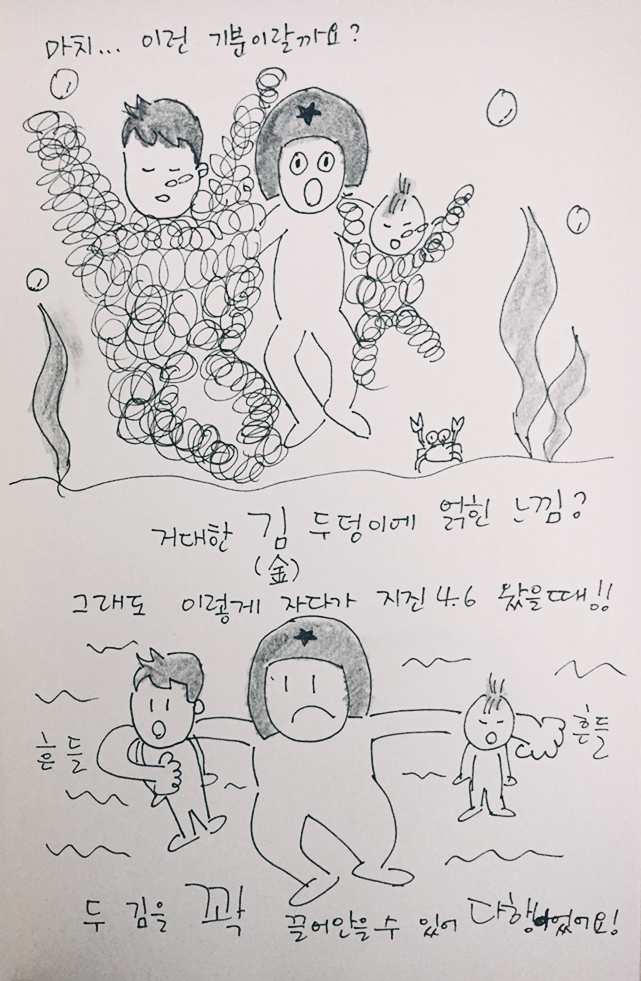 마치... 이런 기분이랄까요?
거대한 김 두덩이에 얽힌 느낌?
(金)
그래도 이렇게 자다가 지진 4.6 왔을때!!
흔들
흔들
두 김을 꽈악 끌어안을 수 있어 다행이었어요!